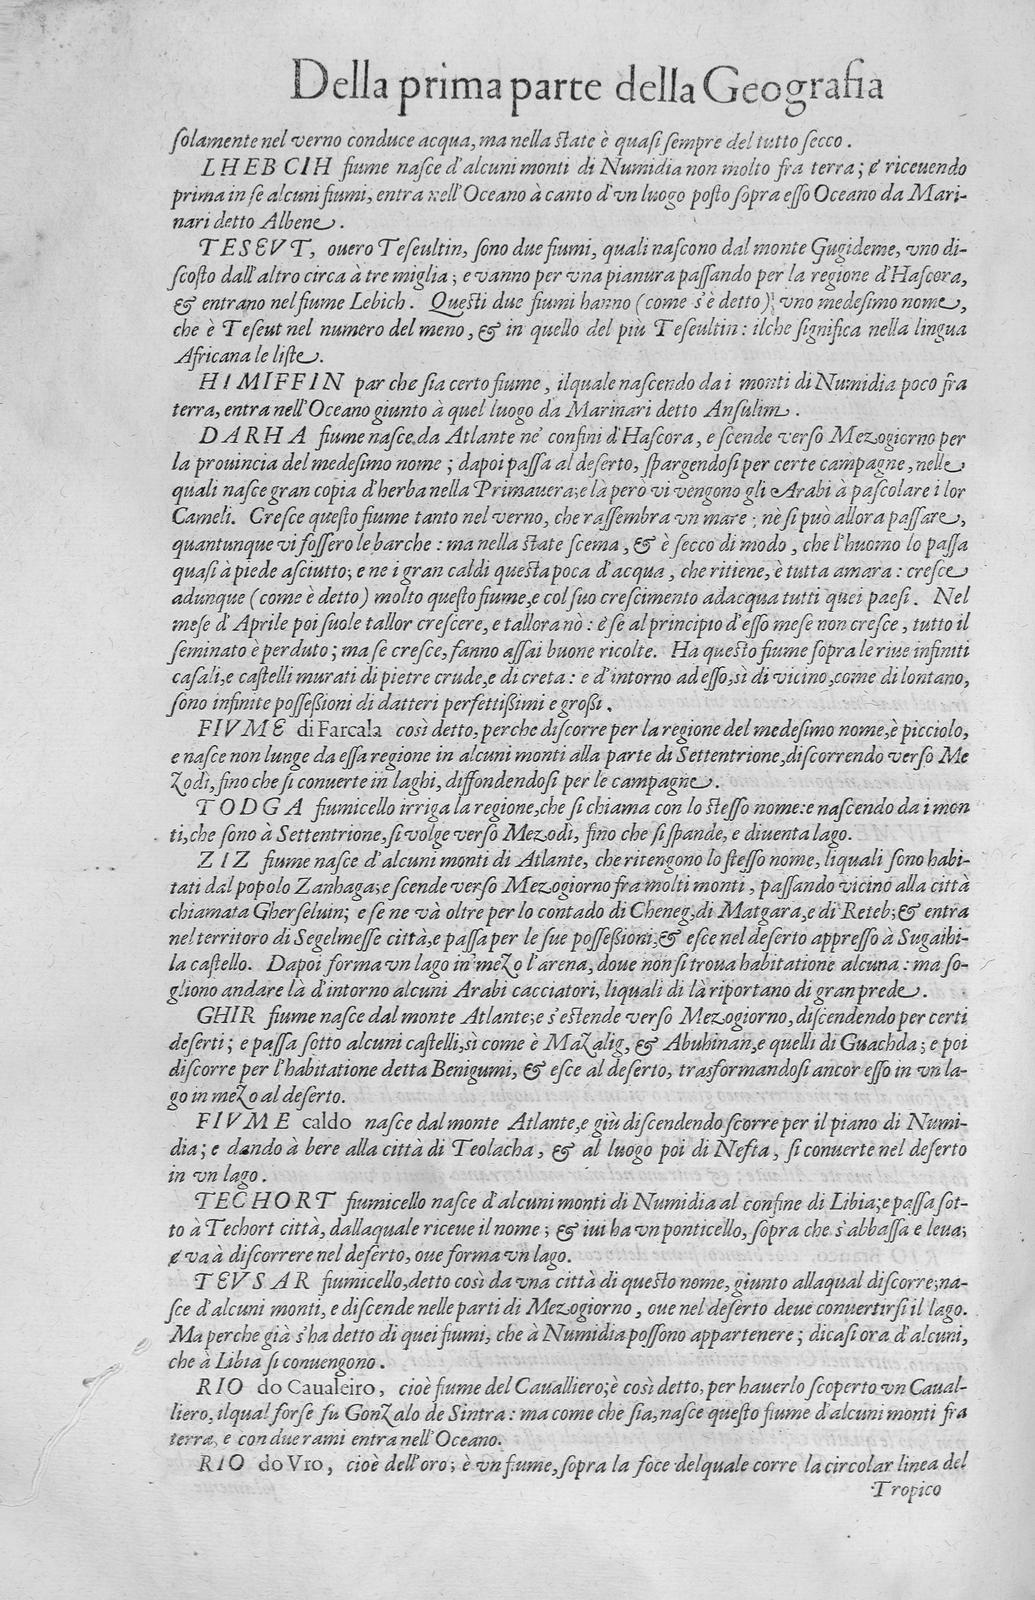 Della prima parte della Geografia
solamente nel verno conduce acqua, ma nella state è quasi sempre del tutto secco.
LHEBCIH fiume nasce d'alcuni monti di Numidia non molto fra terra; & riceuendo
prima in se alcuni fiumi, entra nell'Oceano à canto d'vn luogo posto sopra esso Oceano da Mari-
nari detto Albene.
TESEVT, ouero Teseultin, sono due fiumi, quali nascono dal monte Gugideme, vno di-
scosto dall'altro circa à tre miglia; e vanno per vna pianura passando per la regione d'Hascora,
& entrano nel fiume Lebich. Questi due fiumi hanno (come s'è detto) vno medesimo nome,
che è Teseut nel numero del meno, & in quello del più Teseultin: ilche significa nella lingua
Africana le liste.
HIMIFFIN par che sia certo fiume, ilquale nascendo da i monti di Numidia poco fra
terra, entra nell'Oceano giunto à quel luogo da Marinari detto Ansulim.
DARHA fiume nasce da Atlante ne' confini d'Hascora, e scende verso Mezogiorno per
la prouincia del medesimo nome; dapoi passa al deserto, spargendosi per certe campagne, nelle
quali nasce gran copia d'herba nella Primauera; e là però vi vengono gli Arabi à pascolare i lor
Cameli. Cresce questo fiume tanto nel verno, che rassembra vn mare; nè si può allora passare,
quantunque vi fossero le barche: ma nella state scema, & è secco di modo, che l'huomo lo passa
quasi à piede asciutto; e ne i gran caldi questa poca d'acqua, che ritiene, è tutta amara: cresce
adunque (come è detto) molto questo fiume, e col suo crescimento adacqua tutti quei paesi. Nel
mese d'Aprile poi suole tallor crescere, e tallora nò: è se al principio d'esso mese non cresce, tutto il
seminato è perduto; ma se cresce, fanno assai buone ricolte. Ha questo fiume sopra le riue infiniti
casali, e castelli murati di pietre crude, e di creta: e d'intorno ad esso, sì di vicino, come di lontano,
sono infinite possessioni di datteri perfettissimi e grossi.
FIVME di Farcala così detto, perche discorre per la regione del medesimo nome, è picciolo,
e nasce non lunge da essa regione in alcuni monti alla parte di Settentrione, discorrendo verso Me
zodì, fino che si conuerte in laghi, diffondendosi per le campagne.
TODGA fiumicello irriga la regione, che si chiama con lo stesso nome: e nascendo da i mon
ti, che sono à Settentrione, si volge verso Mezodì, fino che si spande, e diuenta lago.
ZIZ fiume nasce d'alcuni monti di Atlante, che ritengono lo stesso nome, liquali sono habi-
tati dal popolo Zanhaga; e scende verso Mezogiorno fra molti monti, passando vicino alla città
chiamata Gherseluin; e se ne và oltre per lo contado di Cheneg, di Matgara, e di Reteb; & entra
nel territoro di Segelmesse città, e passa per le sue possessioni, & esce nel deserto appresso à Sugaihi-
la castello. Dapoi forma vn lago in mezo l'arena, doue non si troua habitatione alcuna: ma so-
gliono andare là d'intorno alcuni Arabi cacciatori, liquali di là riportano di gran prede.
GHIR fiume nasce dal monte Atlante; e s'estende verso Mezogiorno, discendendo per certi
deserti; e passa sotto alcuni castelli, sì come è Mazalig, & Abuhinan, e quelli di Guachda; e poi
discorre per l'habitatione detta Benigumi, & esce al deserto, trasformandosi ancor esso in vn la-
go in mezo al deserto.
FIVME caldo nasce dal monte Atlante, e giù discendendo scorre per il piano di Numi-
dia; e dando à bere alla città di Teolacha, & al luogo poi di Nefta, si conuerte nel deserto
in vn lago.
TECHORT fiumicello nasce d'alcuni monti di Numidia al confine di Libia; e passa sot-
to à Techort città, dallaquale riceue il nome; & iui ha vn ponticello, sopra che s'abbassa e leua;
& và à discorrere nel deserto, oue forma vn lago.
TEVSAR fiumicello, detto così da vna città di questo nome, giunto allaqual discorre; na-
sce d'alcuni monti, e discende nelle parti di Mezogiorno, oue nel deserto deue conuertirsi il lago.
Ma perche già s'ha detto di quei fiumi, che à Numidia possono appartenere; dicasi ora d'alcuni,
che à Libia si conuengono.
RIO do Caualeiro, cioè fiume del Caualliero; è così detto, per hauerlo scoperto vn Caual-
liero, ilqual forse fu Gonzalo de Sintra: ma come che sia, nasce questo fiume d'alcuni monti fra
terra, e con due rami entra nell'Oceano.
RIO do Vro, cioè dell'oro; è vn fiume, sopra la foce delquale corre la circolar linea del
Tropico